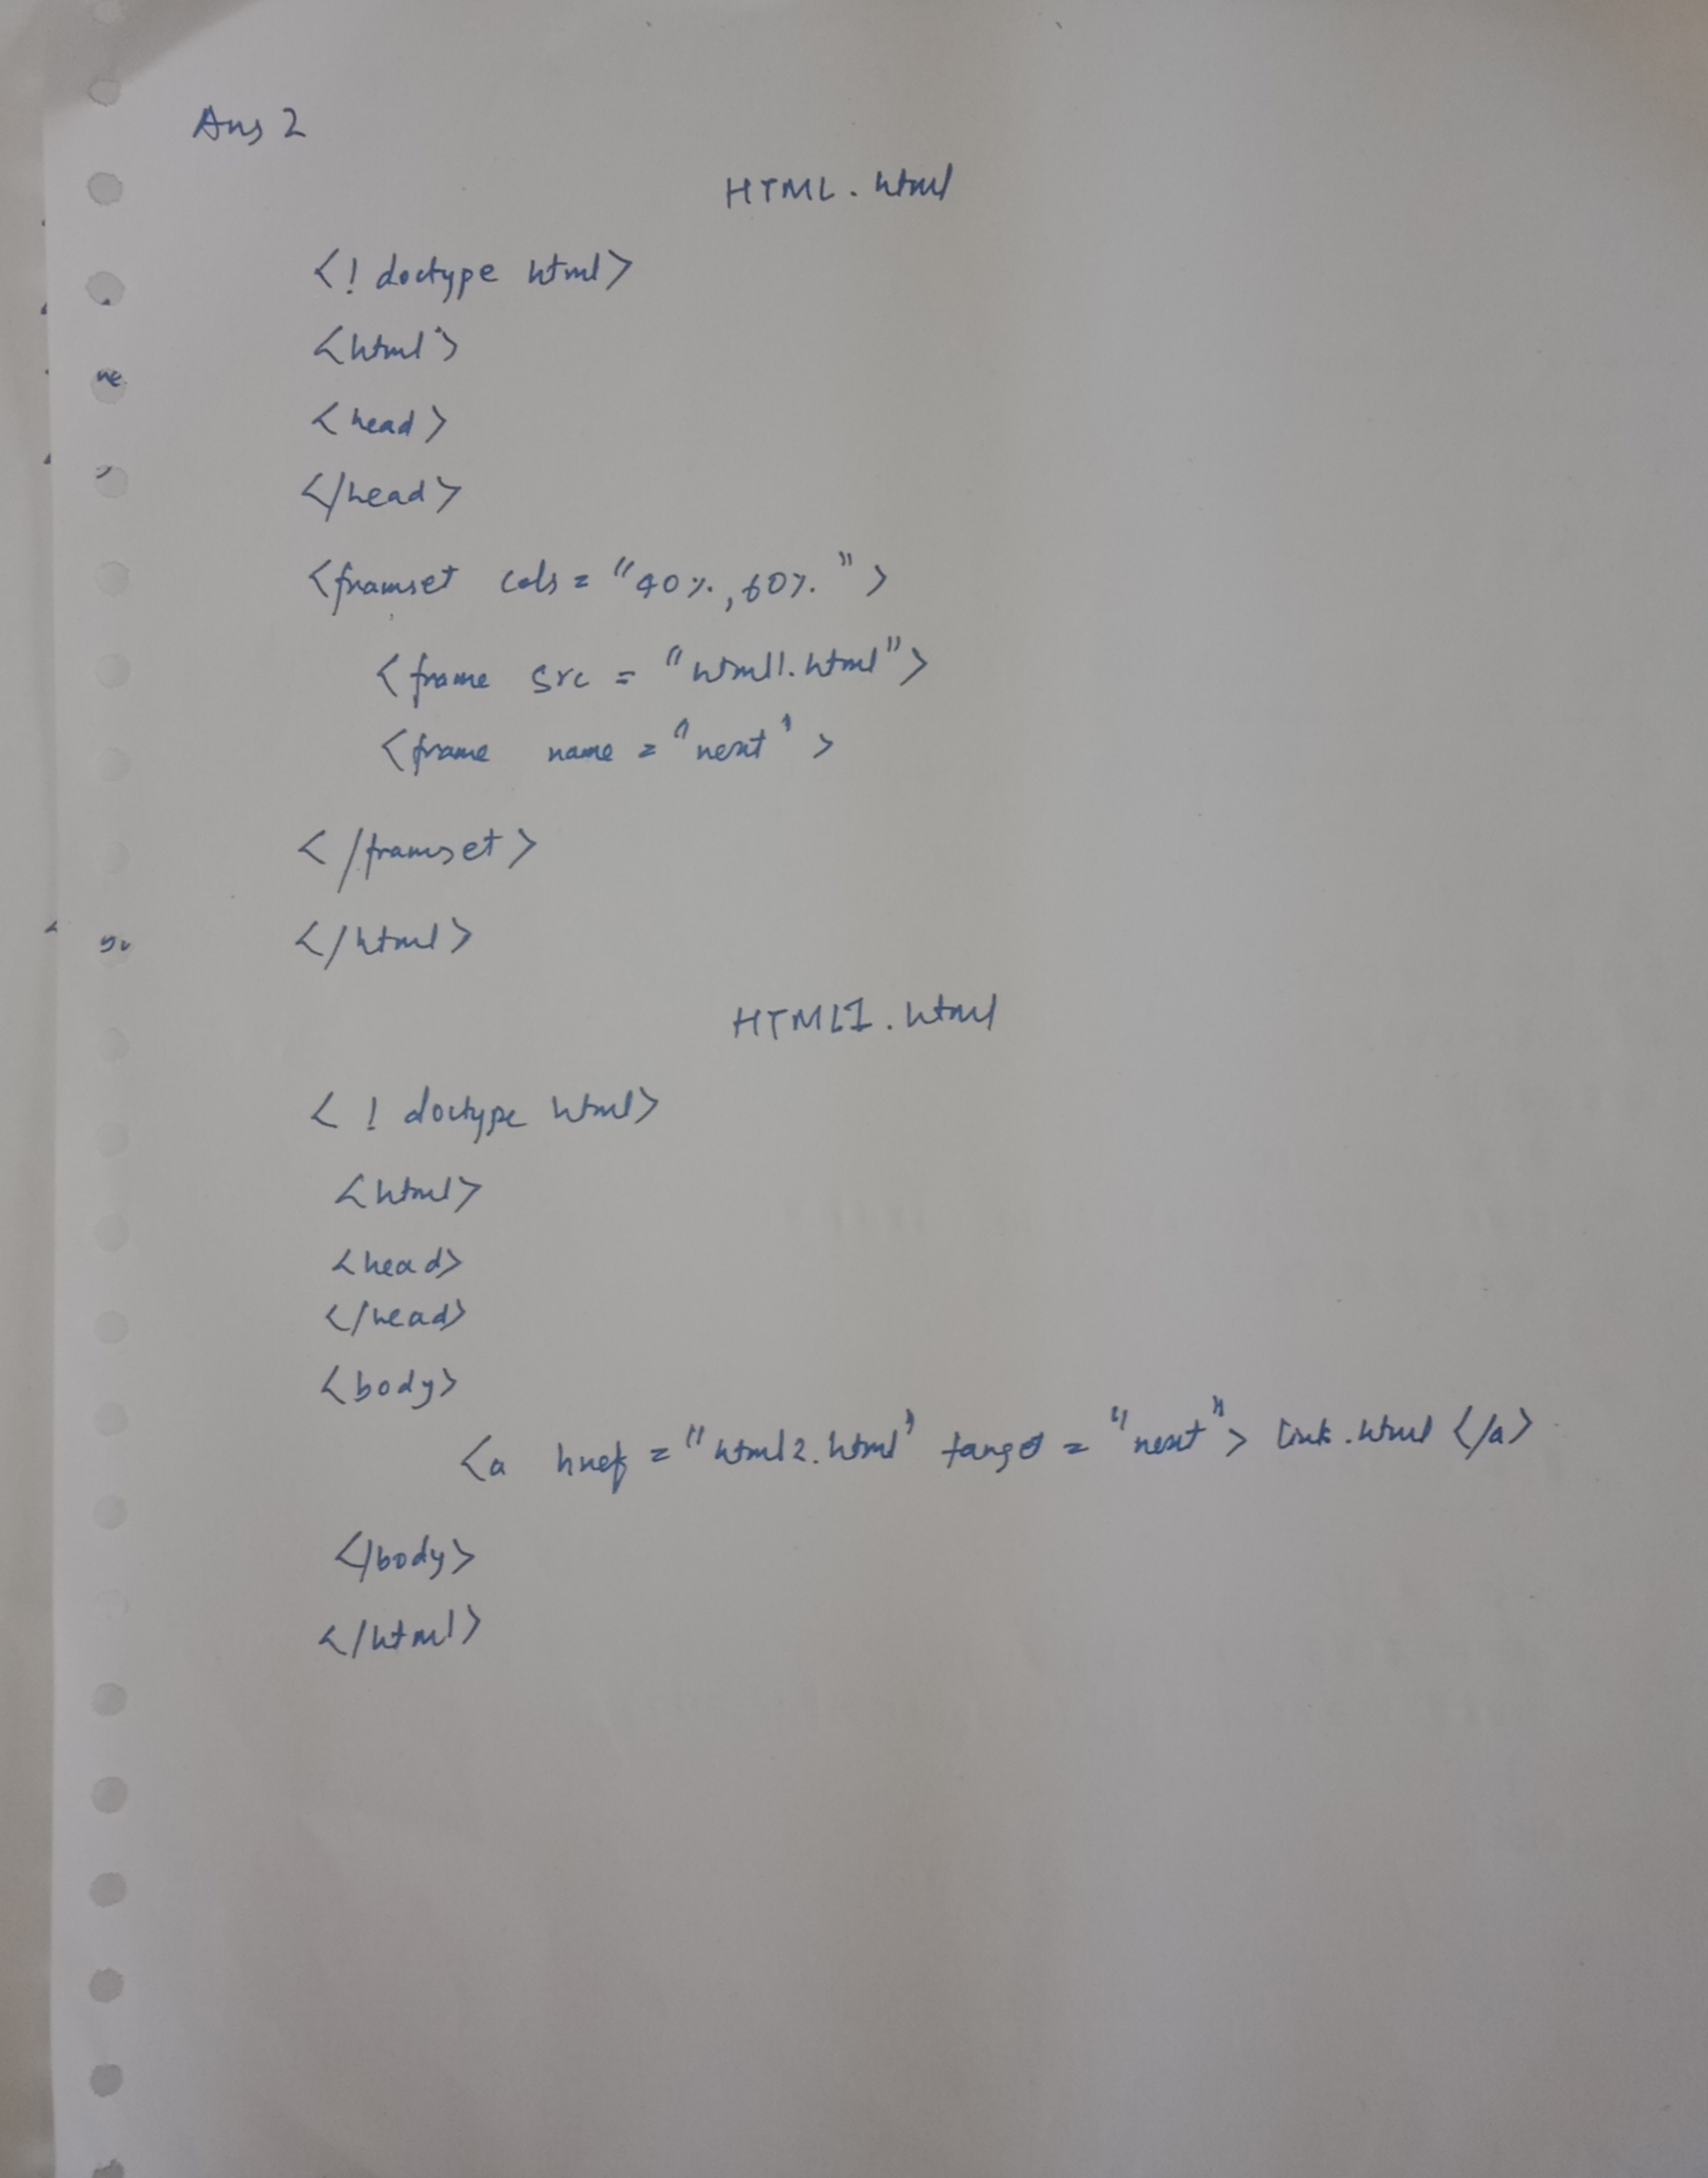 Ans 2
HTML.html
<!doctype html>
<html>
<head>
</head>
<framset cols="40%,60%">
<frame src="html1.html">
<frame name="next'>
</framset>
</html>
HTML1.html
<!doctype html>
<html>
<head>
</head>
<body>
<a href="html2.html' target="next"> link.html </a>
</body>
</html>